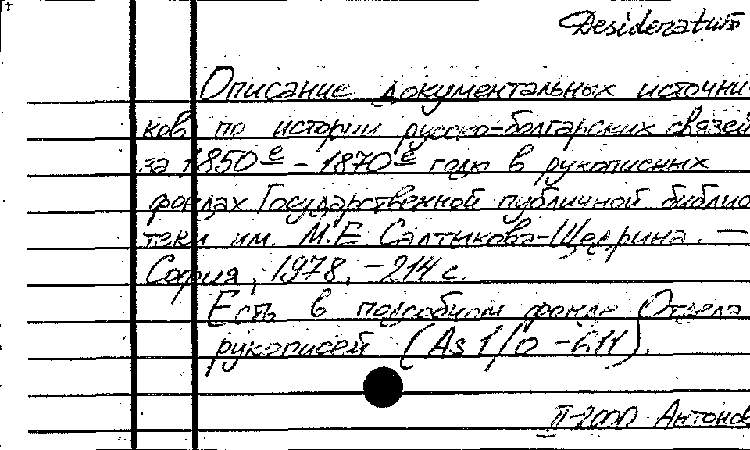 Desideratum
Описание документальных источни-
ков по истории русско-болгарских связей
за 1850е - 1870е годы в рукописных
фондах Государственной публичной библио
теки им. М.Е Салтыкова-Щедрина. —
София, 1978, - 214 с.
Есть в подсобном фонде Отдела
рукописей (As 1/0 - 611).
II-2000 Антонов